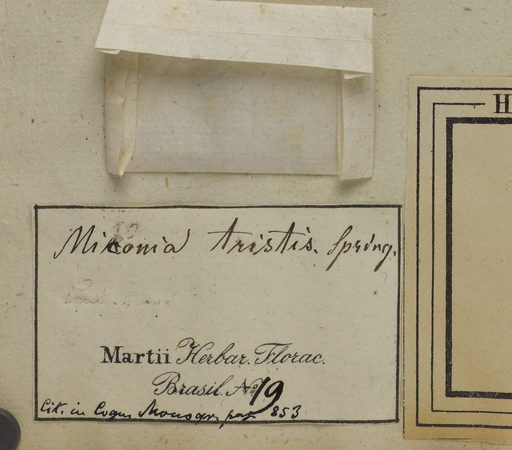 Miconia tristis. Spring.
Martii Herbar. Florac.
Brasil. No 19
Cit. in Cogn. Monogr. pag. 853
H